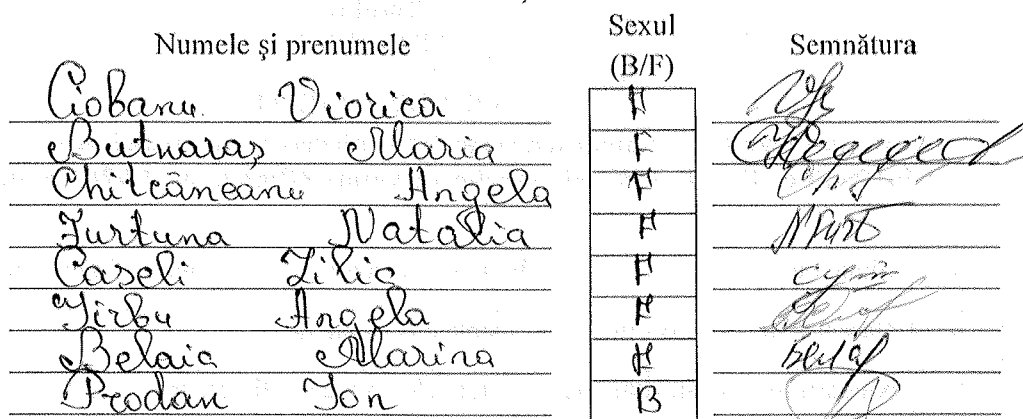 Numele şi prenumele Sexul (B/F) Semnătura
Ciobanu Viorica F
Butnaraş Maria F
Chitcăneanu Angela F
Furtuna Natalia F
Caseli Lilia F
Sîrbu Angela F
Belaia Marina F
Prodan Ion B